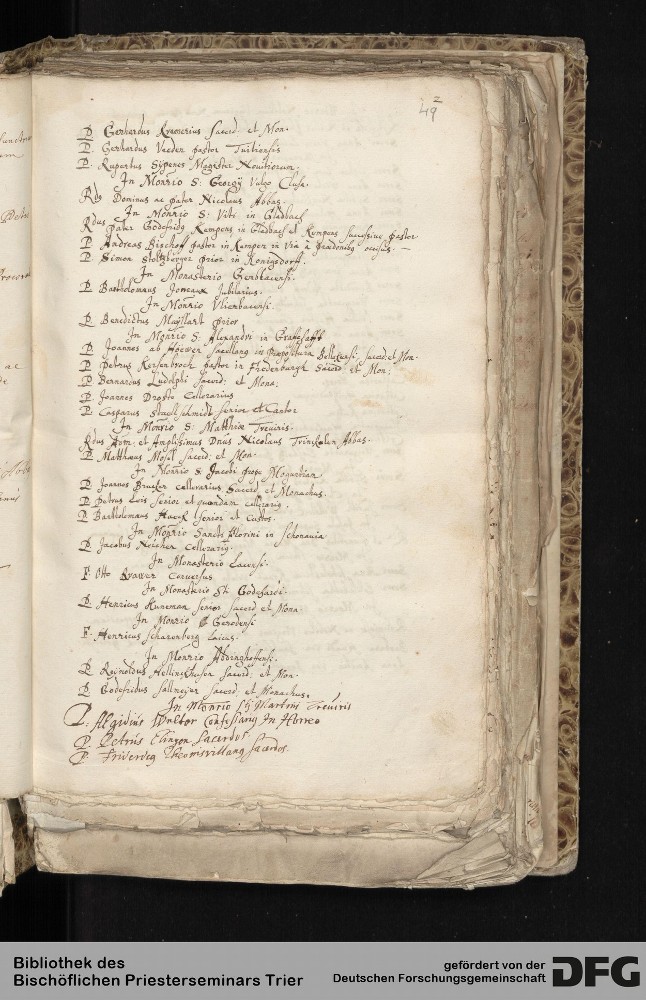 2
49
P Gerhardus Kramerius Sacerd: et Mon.
P. Gerhardus Verden pastor Tuitiensis
P. Rupertus Sypenes Magister Novitiorum.
In Monrio S: Georgy vulgo Cluse.
Rds Dominus ac pater Nicolaus Abbas
In Monrio S: Viti in Gladbach
Rdus pater Godefrids Kempens in Gladbach et Kempens successive pastor
P Andreas Bischoff pastor in Kempen in via a praedonibs occisus.
P. Simon Stoltzberger prior in Konigsdorff.
In Monasterio Gemblacensi.
P Bartholomaus Joneaux Jubilarius.
In Monrio Vlierbacensi.
P Benedictus Mayllart prior
In Monrio S. Alexandri in Grafschafft
P Joannes ab Höewer Sacellang in praepositura Bellicensi, Sacerd: et Mon.
P Petrus Kersenbroch pastor in Fredenburgh Sacerd: et Mon:
P Bernardus Ludolphi Sacerd: et Mona:
P Joannes Droste Cellerarius
P Casparus Stuellschmidt Senior et Cantor
In Monrio S: Matthiae Treviris.
Rdus Adm: et Amplissimus Dnus Nicolaus Trinkelen Abbas.
P Matthaeus Mosal Sacerd: et Mon.
In Monrio S Jacobi prope Moguntiam
P Joannes Brucker cellerarius Sacerd et Monachus.
P Petrus Lois Senior et quondam Cellerarig.
P. Bartholomaus Hueck Senior et Custos.
In Monrio Sancti Florini in Schonavia
P Jacobus Neichen Cellerarig.
In Monasterio Lacensi.
F. Otto Brawer Conversus
In Monasterio Sti Godehardi.
P Henricus Kuneman Senior Sacerd et Mona
In Monrio Gerodensi
F. Henricus Scharenberg Laicus.
In Monrio Abdinghoffensi.
P Reynoldus Hellinghusen Sacerd: et Mon.
P Godefridus Sallmeyer Sacerd: et Monachus.
In Monrio Sti Martini Treviris
P. Aegidius Walter Confessarig In Horreo
P. Petrus Elingon Sacerdos
P. Sacerdos.
Bibliothek des
Bischöflichen Priesterseminars Trier
gefördert von der
Deutschen Forschungsgemeinschaft
DFG